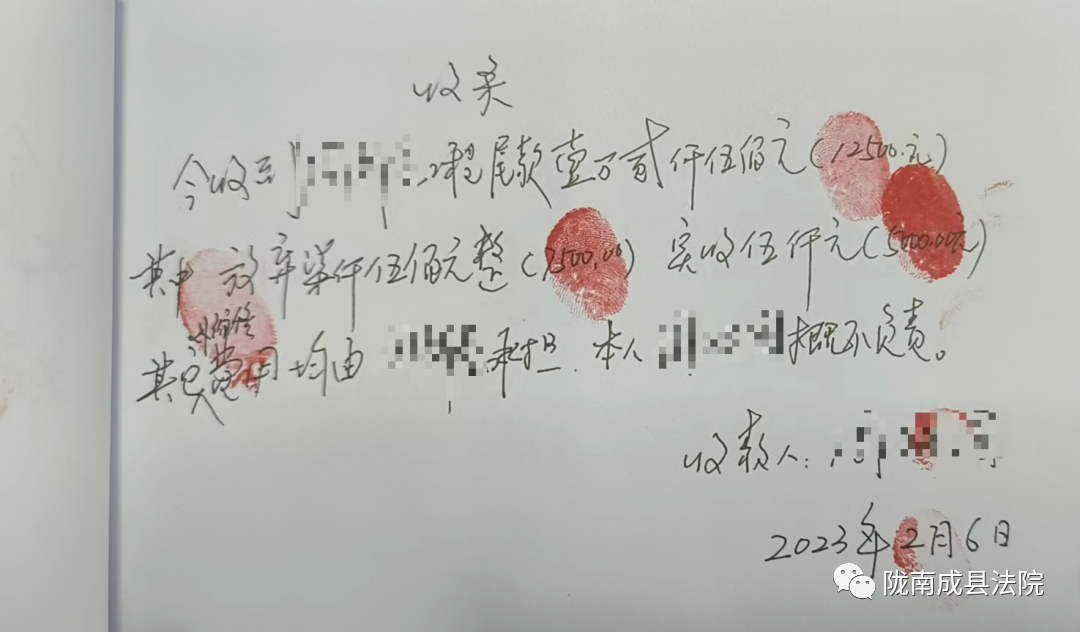 收条
今收到 工程尾款壹万贰仟伍佰元(12500.元)
其中 放弃柒仟伍佰元整(7500.00) 实收伍仟元(5000.00元)
维修
其它费用均由 承担.本人 概不负责。
收款人:
2023年2月6日
陇南成县法院